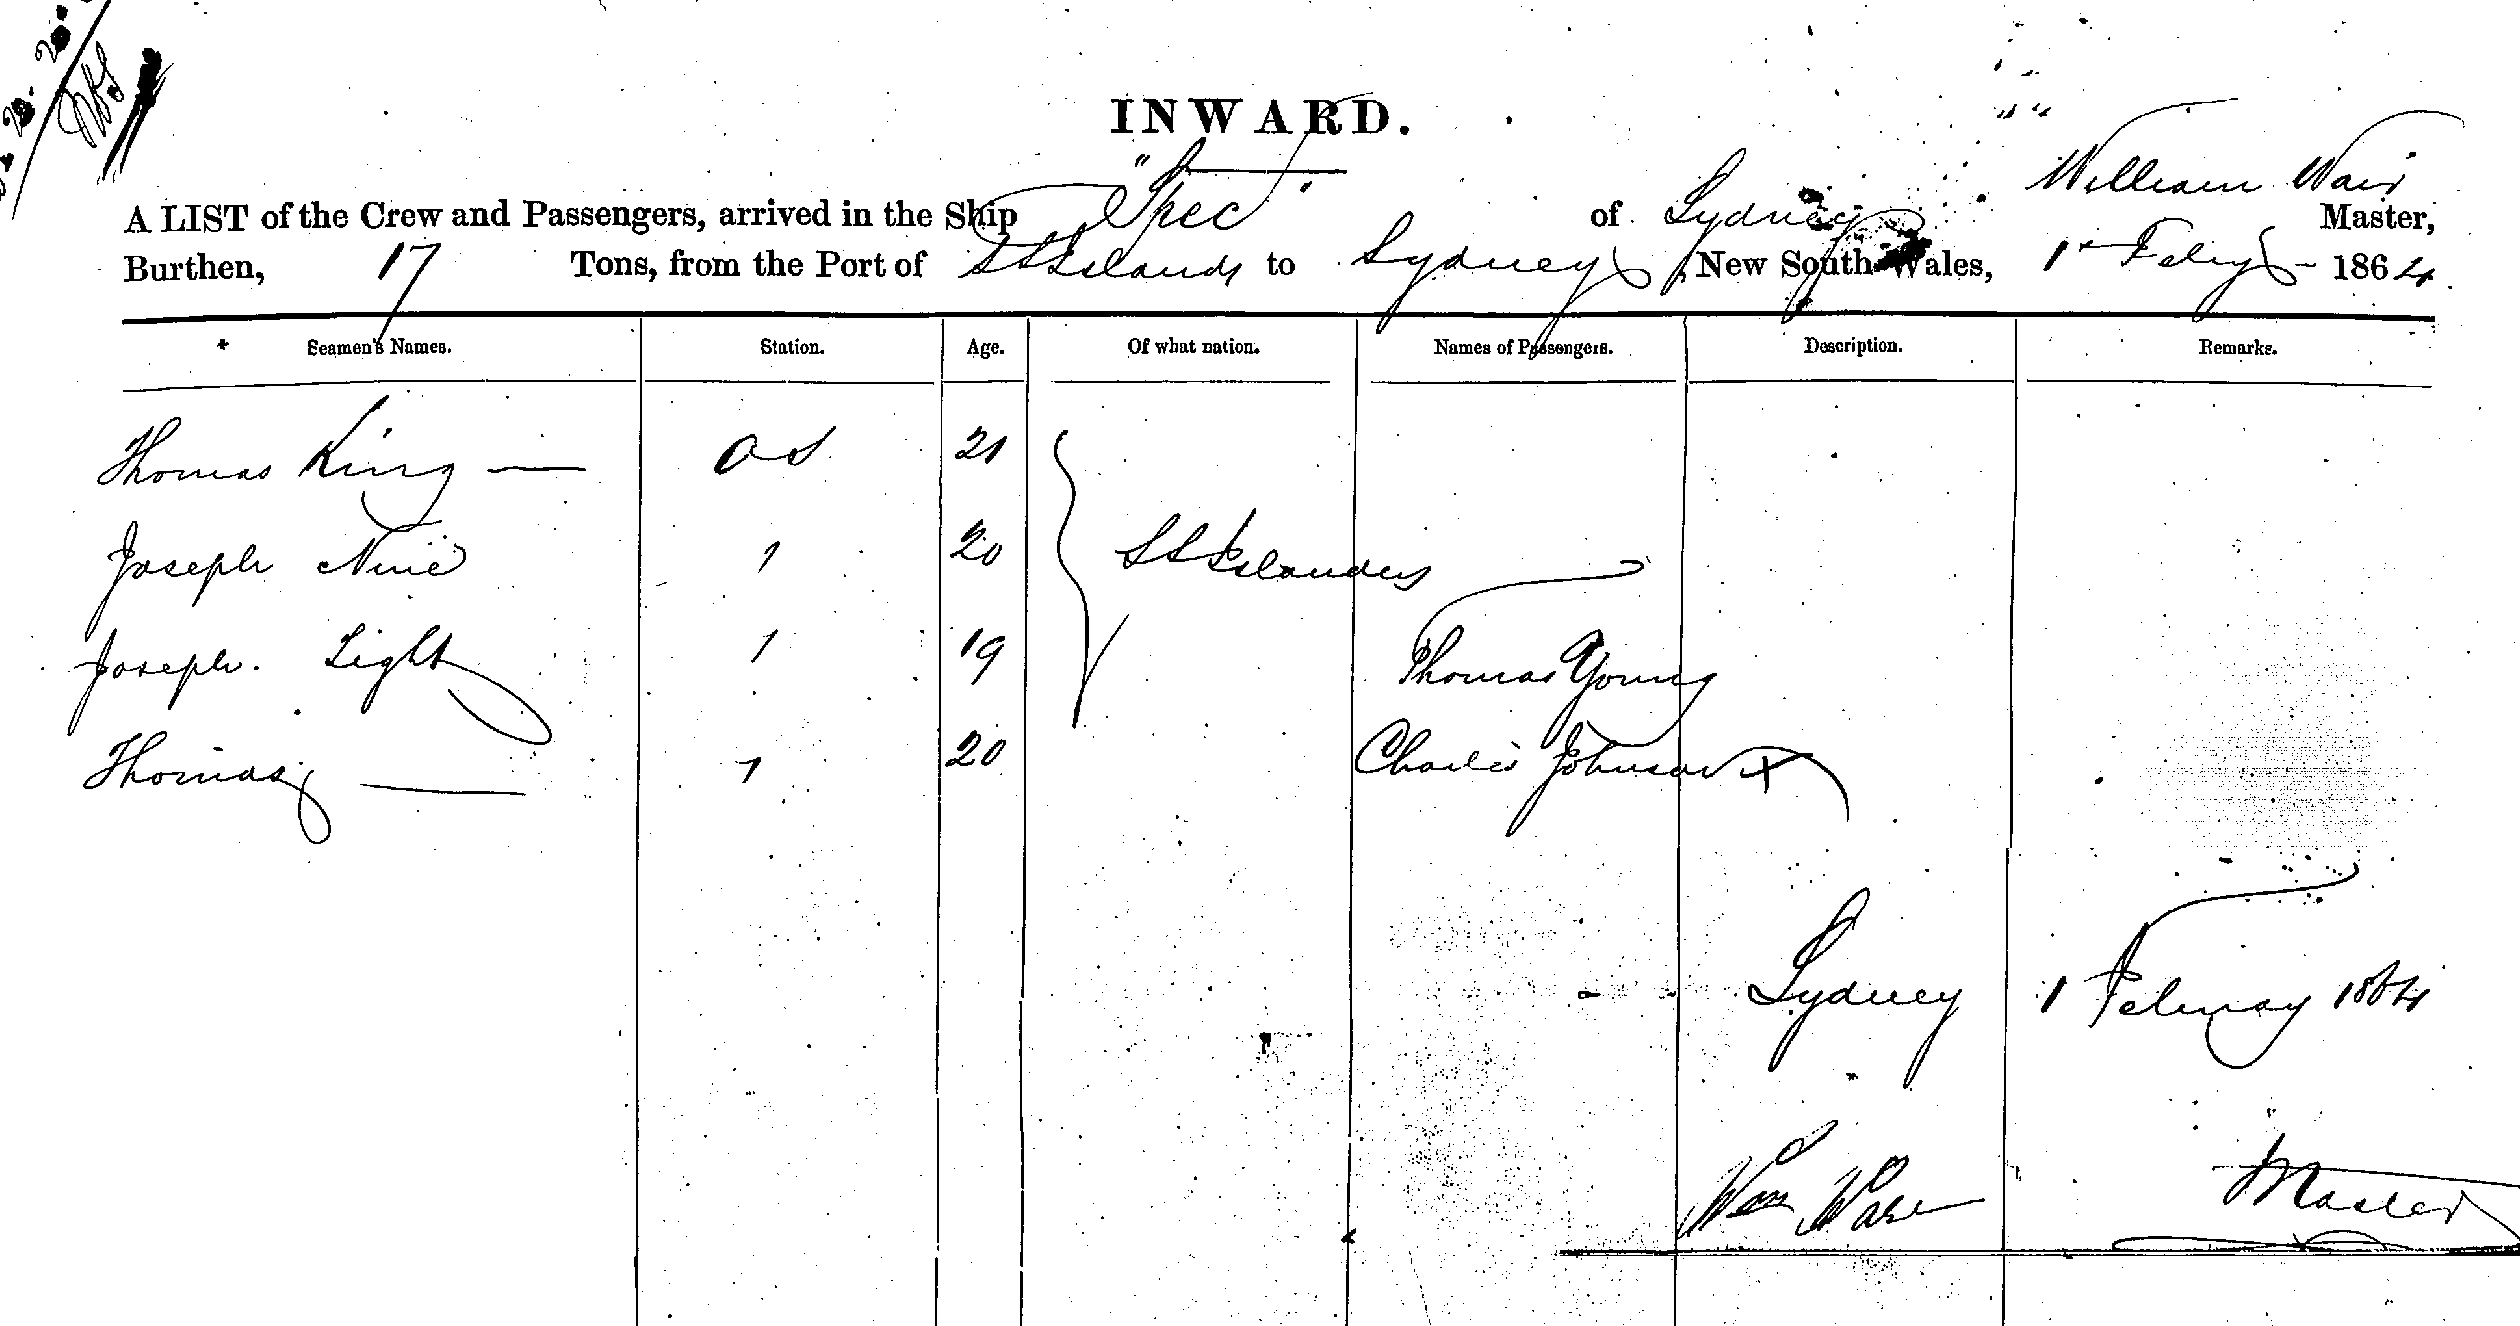 INWARD.
A LIST of the Crew and Passengers, arrived in the Ship "Spec" of Sydney William Wair Master,
Burthen, 17 Tons, from the Port of SSIslands to Sydney, New South Wales, 1st Feby 1864
Seamen's Names. Station. Age. Of what nation. Names of Passengers. Description. Remarks.
Thomas King — O S 21
Joseph Nine 1 20 SSIslanders
Joseph. Light 1 19 Thomas Young
Thomas — 1 20 Charles Johnson X
Sydney 1 February 1864
Wm Ware Master